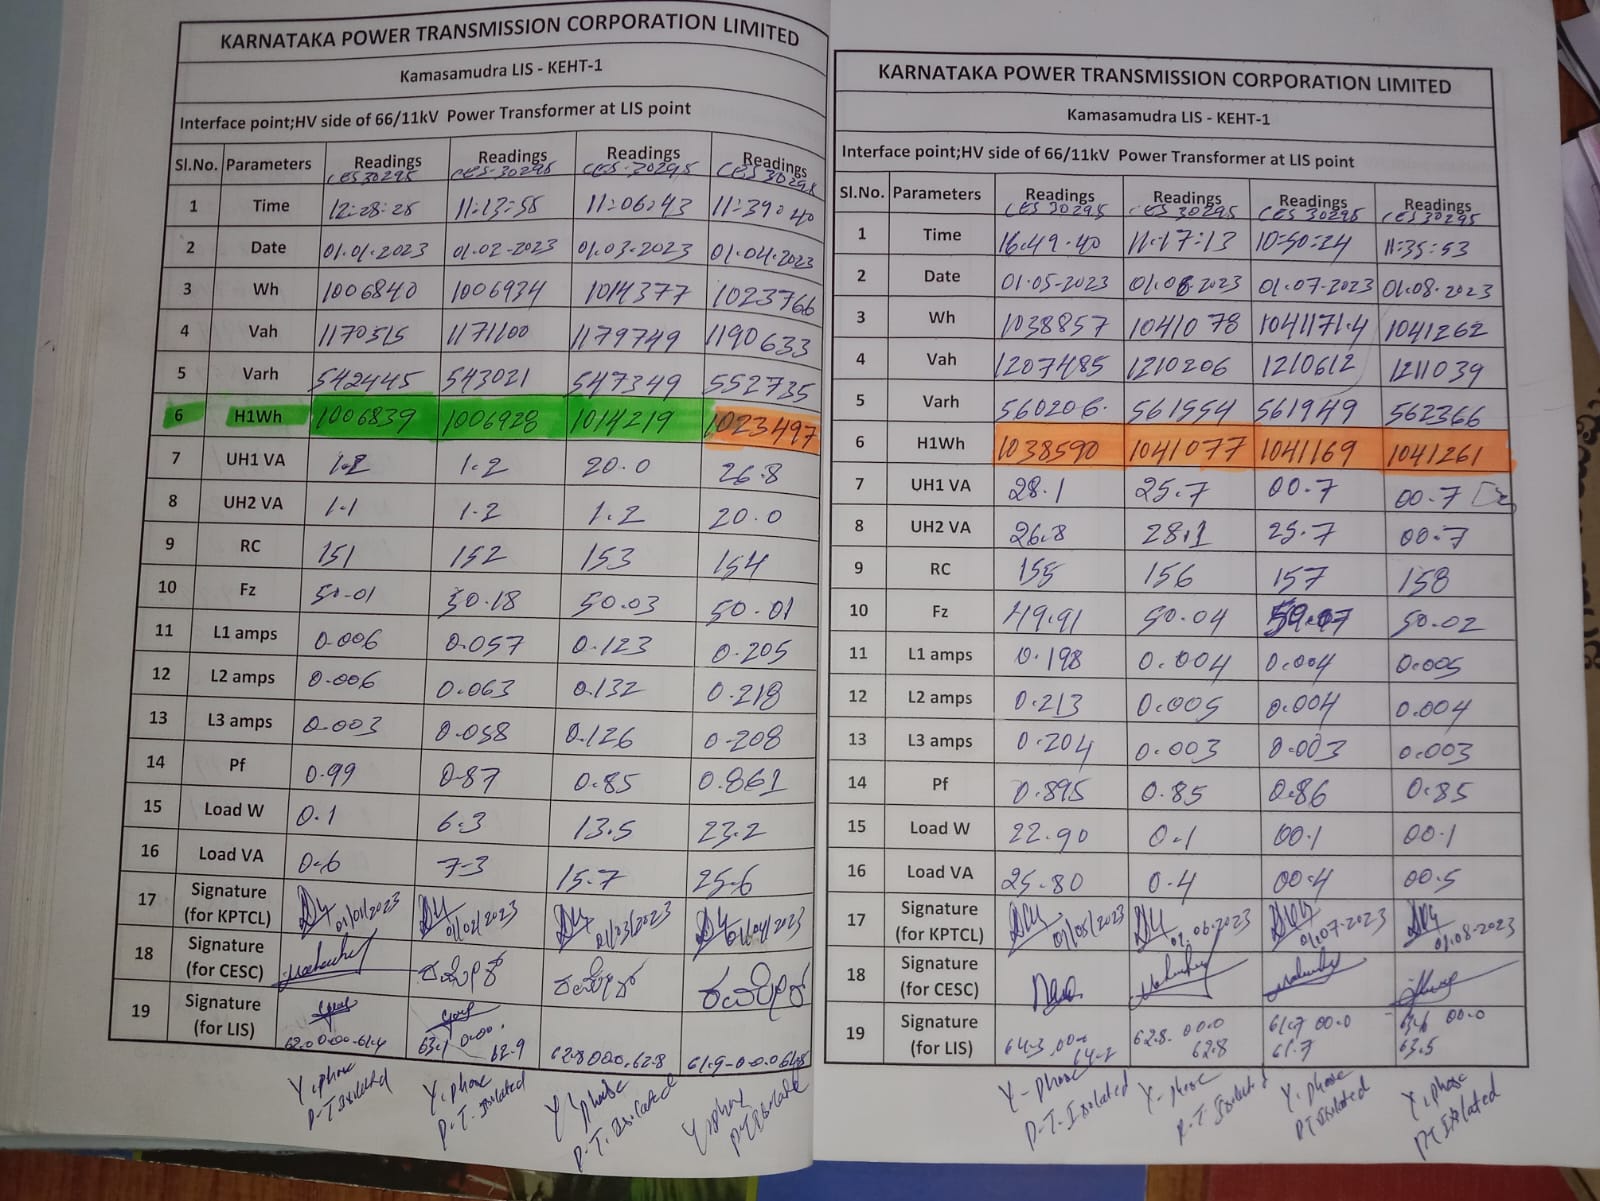 KARNATAKA POWER TRANSMISSION CORPORATION LIMITED
Kamasamudra LIS - KEHT-1
Interface point;HV side of 66/11kV Power Transformer at LIS point
Sl.No. Parameters Readings Readings Readings Readings
CES 30295 CES-30295 CES-30295 CES 30295
1 Time 12:28:28 11:13:58 11:06:43 11:39:40
2 Date 01.01.2023 01.02-2023 01.03.2023 01.04.2023
3 Wh 1006840 1006934 1014377 1023766
4 Vah 1170515 1171100 1179749 1190633
5 Varh 542445 543021 547349 552735
6 H1Wh 1006839 1006928 1014219 1023497
7 UH1 VA 1.2 1.2 20.0 26.8
8 UH2 VA 1.1 1.2 1.2 20.0
9 RC 151 152 153 154
10 Fz 50.01 50.18 50.03 50.01
11 L1 amps 0.006 0.057 0.123 0.205
12 L2 amps 0.006 0.063 0.132 0.218
13 L3 amps 0.003 0.058 0.126 0.208
14 Pf 0.99 0.87 0.85 0.861
15 Load W 0.1 6.3 13.5 23.2
16 Load VA 0.6 7.3 15.7 25.6
17 Signature (for KPTCL) 01/01/2023 01/02/2023 01/03/2023 01/04/2023
18 Signature (for CESC)
19 Signature (for LIS)
62.0 0.00-61.4 63.1 0.00. 62.9 62.8 000, 62.8 61.9-00.0
Y.phase Y.phase Y'phase Y.phase
P-T Isolated P.T. Isolated P.T. Isolated PT Isolate
KARNATAKA POWER TRANSMISSION CORPORATION LIMITED
Kamasamudra LIS - KEHT-1
Interface point;HV side of 66/11kV Power Transformer at LIS point
Sl.No. Parameters Readings Readings Readings Readings
CES 30295 CES 30295 CES 30295 CES 30295
1 Time 16.49.40 11.17:13 10:50:24 11:35:53
2 Date 01.05-2023 01.06.2023 01.07.2023 01.08.2023
3 Wh 1038857 1041078 1041171.4 1041262
4 Vah 1207485 1210206 1210612 1211039
5 Varh 560206. 561554 561949 562366
6 H1Wh 1038590 1041077 1041169 1041261
7 UH1 VA 28.1 25.7 00.7 00.7
8 UH2 VA 26.8 28.1 25.7 00.7
9 RC 155 156 157 158
10 Fz 49.91 50.04 50.02
11 L1 amps 0.198 0.004 0.004 0.005
12 L2 amps 0.213 0.005 0.004 0.004
13 L3 amps 0.204 0.003 0.003 0.003
14 Pf 0.895 0.85 0.86 0.85
15 Load W 22.90 0.1 00.1 00.1
16 Load VA 25.80 0.4 00.4 00.5
17 Signature (for KPTCL) 01/05/2023 01.06.2023 01.07.2023 01.08.2023
18 Signature (for CESC)
19 Signature (for LIS)
64.3 62.8. 00.0 62.8 61.7 00.0 61.7 63.6 00.0 63.5
Y-phase Y-phase Y.phase Y.phase
P-T. Isolated P.T. Isolated PT Isolated PT Isolated